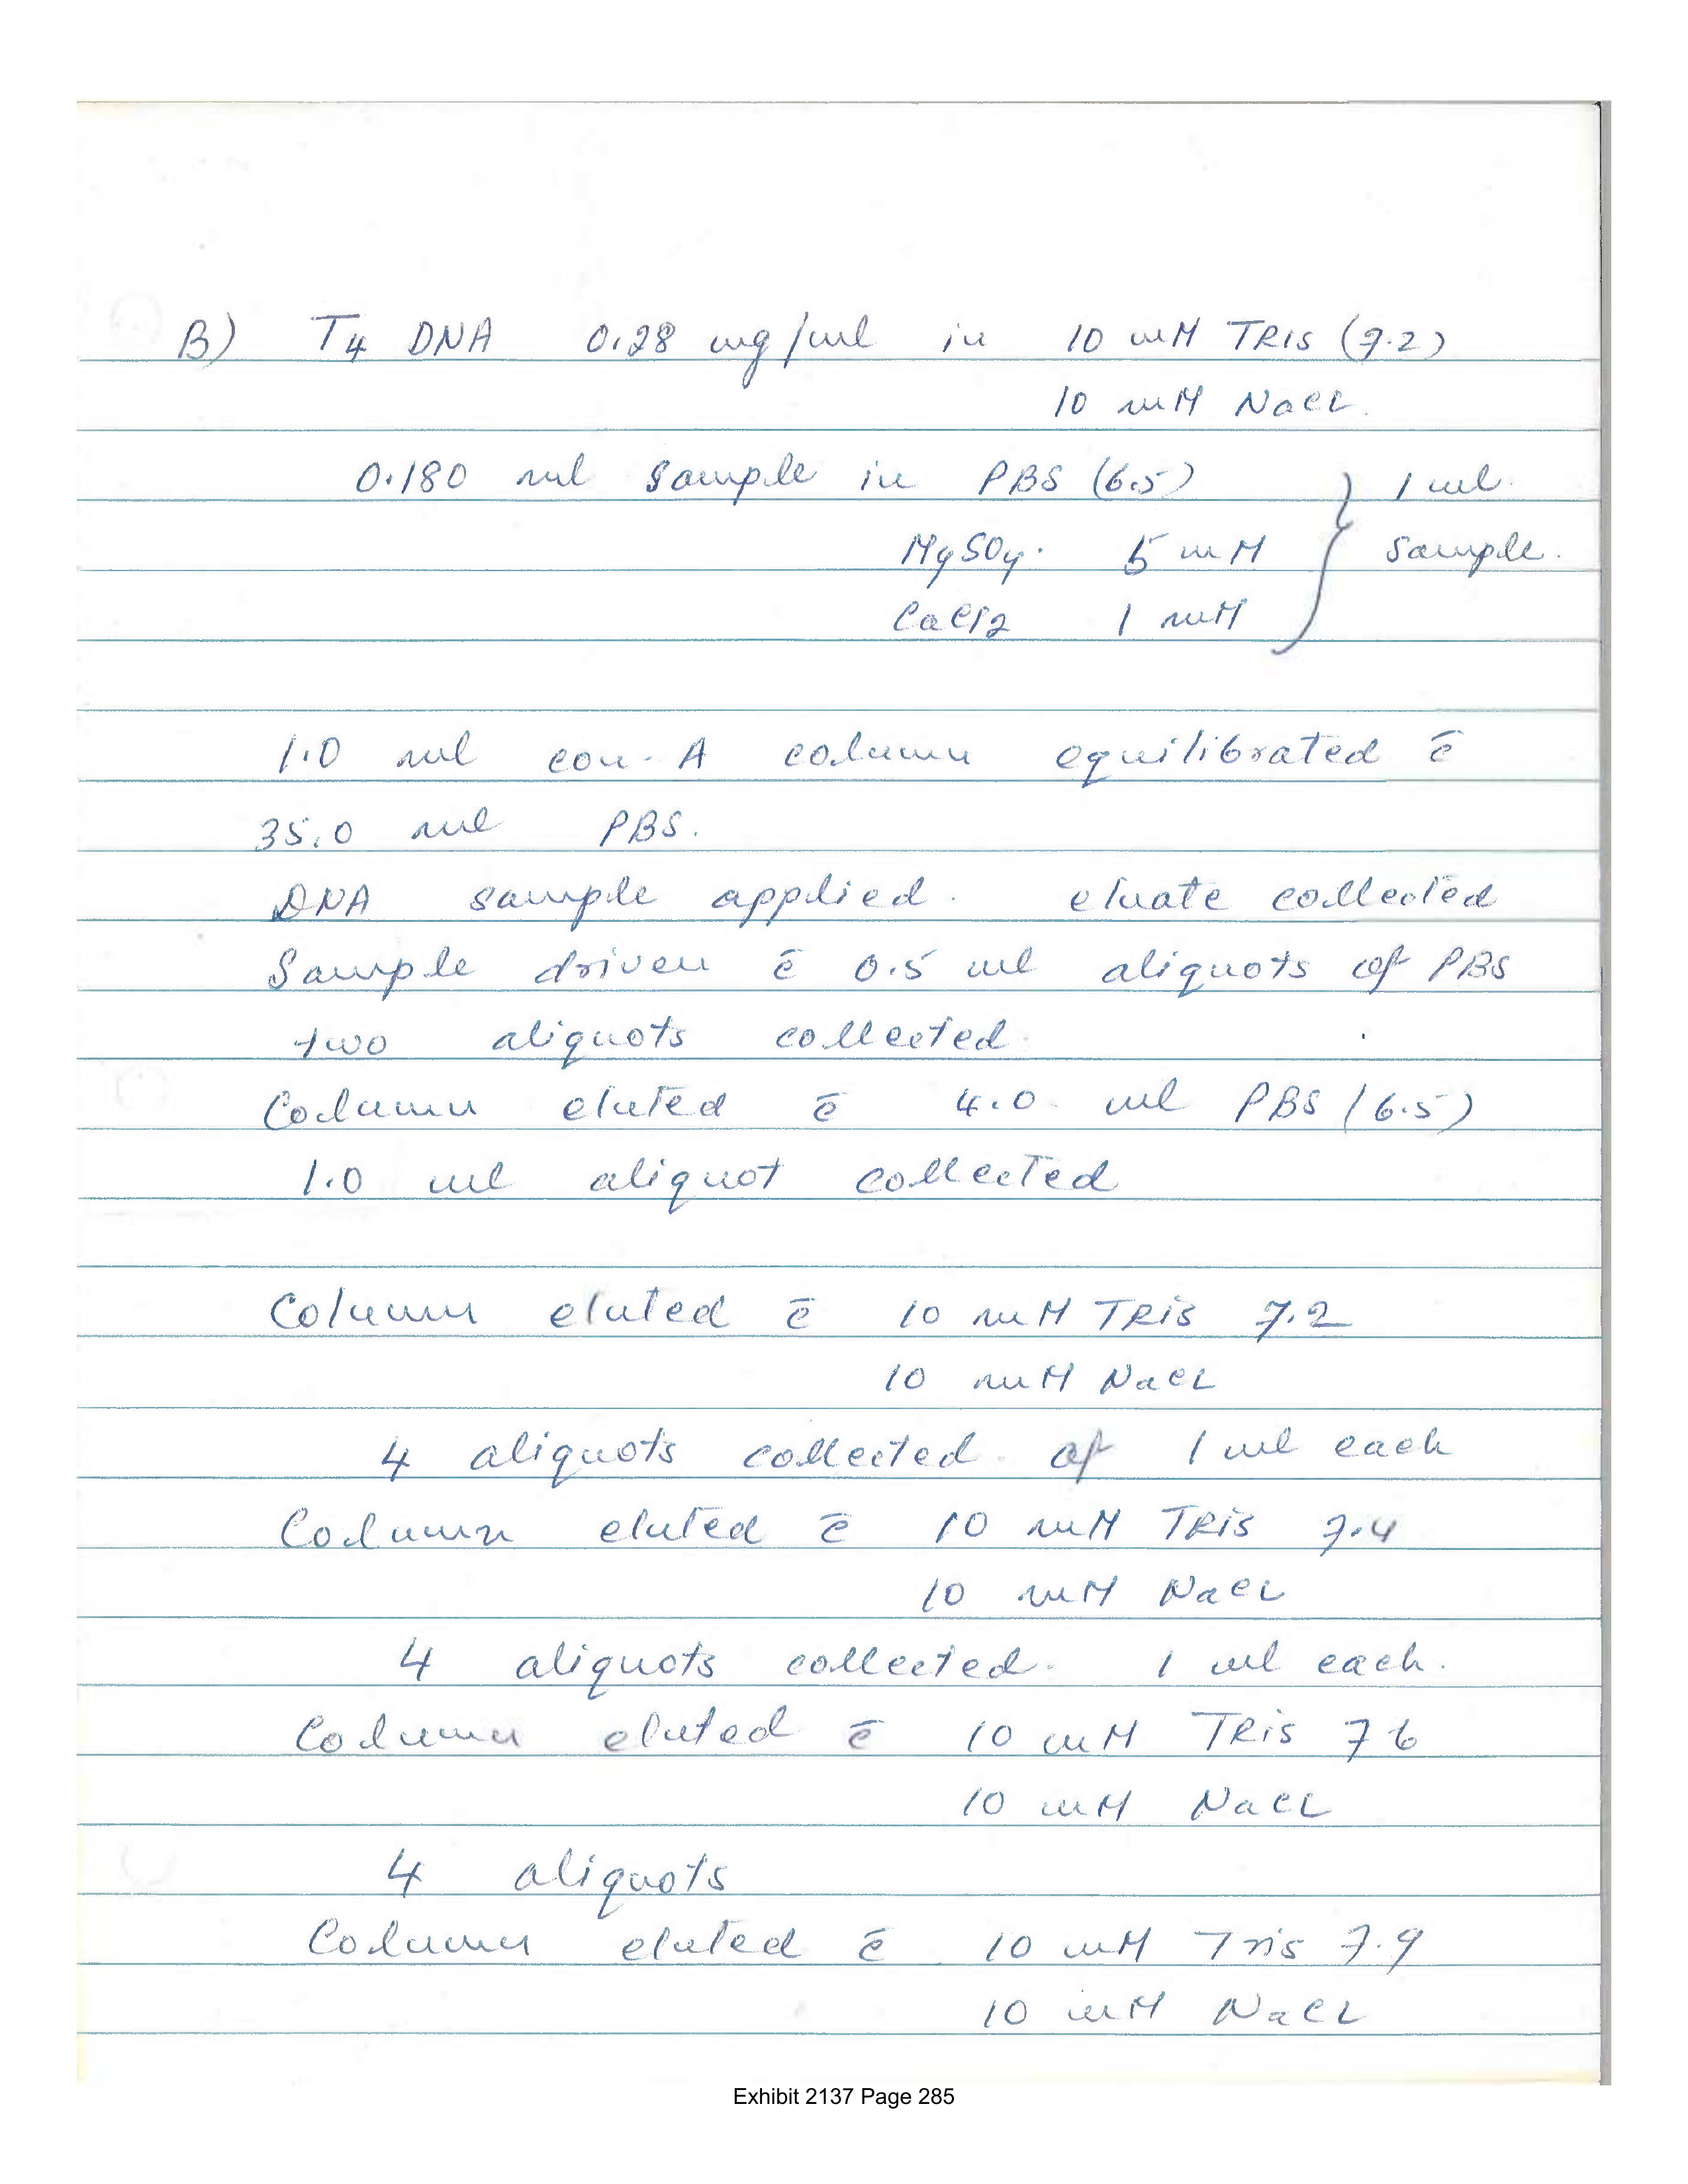 B) T4 DNA 0.28 mg/ml in 10 mM TRIS (7.2)
10 mM NaCl.
0.180 ml sample in PBS (6.5) } 1 ml.
MgSO4. 5 mM sample.
CaCl2 1 mM
1.0 ml con-A column equilibrated c̄
35.0 ml PBS.
DNA sample applied. eluate collected
Sample driven c̄ 0.5 ml aliquots of PBS
two aliquots collected.
Column eluted c̄ 4.0 ml PBS (6.5)
1.0 ml aliquot collected
Column eluted c̄ 10 mM TRis 7.2
10 mM NaCl
4 aliquots collected of 1 ml each
Column eluted c̄ 10 mM TRis 7.4
10 mM NaCl
4 aliquots collected. 1 ml each.
Column eluted c̄ 10 mM TRis 7 6
10 mM NaCl
4 aliquots
Column eluted c̄ 10 mM Tris 7.9
10 mM NaCl
Exhibit 2137 Page 285